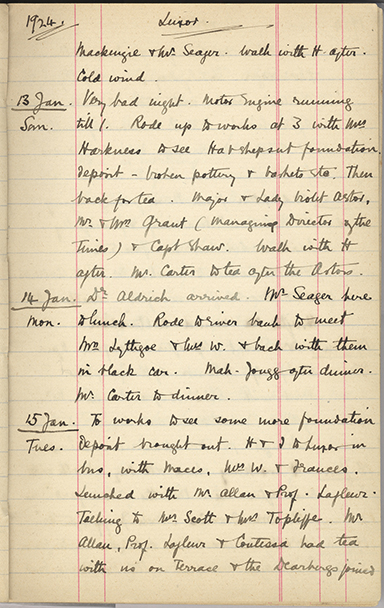 1924. Luxor.
Mackenzie & Mr Seager. Walk with H after.
Cold wind.
13 Jan. Very bad night. Motor Engine running
Sun. till 1. Rode up to works at 3 with Mrs
Harkness to see Hatshepsut foundation
deposit - broken pottery & baskets etc. Then
back for tea. Major & Lady Violet Astor,
Mr. & Mrs Grant (Managing Director of the
Times) & Capt Shaw. Walk with H
after. Mr. Carter to tea after the Astors.
14 Jan. Dr Aldrich arrived. Mr Seager here
Mon. to lunch. Rode to river bank to meet
Mrs Lythgoe & Mrs W. & back with them
in black car. Mah-Jongg after dinner.
Mr. Carter to dinner.
15 Jan. To works to see some more foundation
Tues. deposit brought out. H & I to Luxor in
bus, with Maces, Mrs W. & Frances.
Lunched with Mr Allan & Prof. Lafleur.
Talking to Mrs Scott & Mrs Topliffe. Mr
Allan, Prof. Lafleur & Contessa had tea
with us on Terrace & the Dearbergs joined